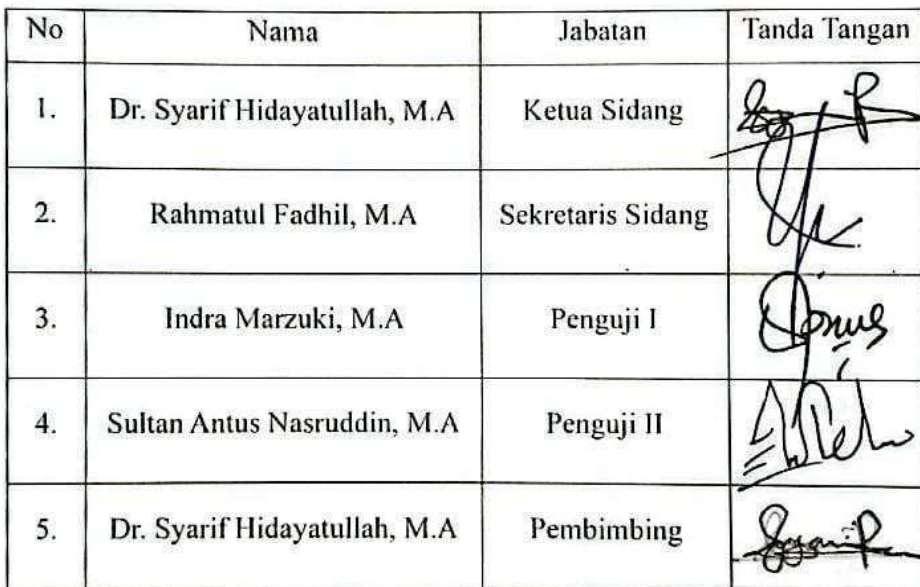 No Nama Jabatan Tanda Tangan
1. Dr. Syarif Hidayatullah, M.A Ketua Sidang
2. Rahmatul Fadhil, M.A Sekretaris Sidang
3. Indra Marzuki, M.A Penguji I
4. Sultan Antus Nasruddin, M.A Penguji II
5. Dr. Syarif Hidayatullah, M.A Pembimbing